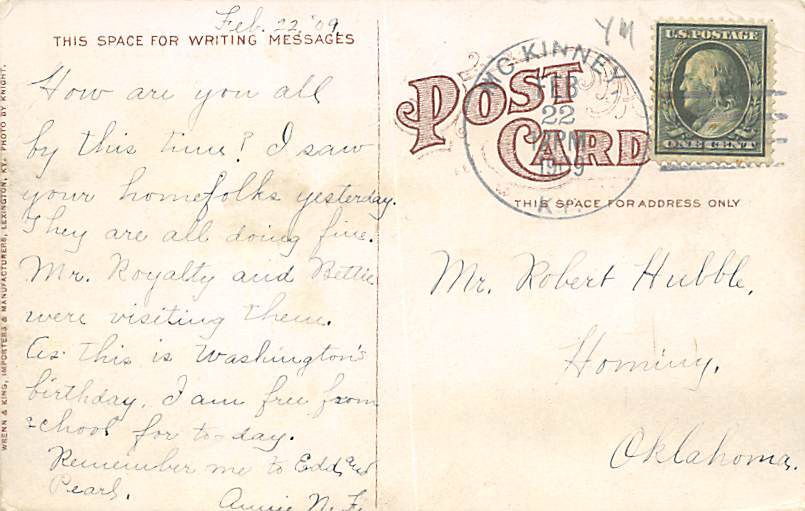 Feb. 22,'09,
THIS SPACE FOR WRITING MESSAGES
How are you all
by this time? I saw
your homefolks yesterday.
They are all doing fine.
Mr. Royalty and Bettie
were visiting them.
As this is Washington's
birthday, I am free from
school for to-day.
Remember me to Edd and
Pearl.
Annie N. F.
WRENN & KING, IMPORTERS & MANUFACTURERS, LEXINGTON, KY. PHOTO BY KNIGHT.
YM
POST
CARD
MC KINNEY
FEB
22
PM
1909
KY.
U.S. POSTAGE
ONE CENT
THIS SPACE FOR ADDRESS ONLY
Mr. Robert Hubble,
Hominy,
Oklahoma.